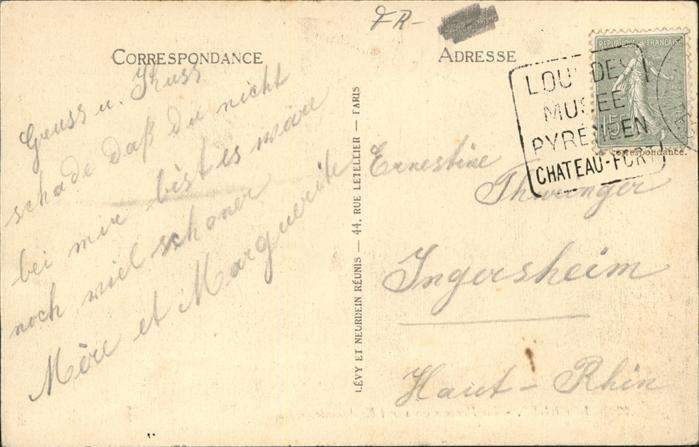 FR-
CORRESPONDANCE
ADRESSE
Gruss u. Kuss
schade daß du nicht
bei mir bist es wäre
noch viel schöner
Mère et Marguerite
LÉVY ET NEURDEIN RÉUNIS — 44, RUE LETELLIER — PARIS
RÉPUBLIQUE FRANÇAISE
15
LOURDES
MUSÉE
PYRÉNÉEN
CHATEAU-FORT
Correspondance.
Ernestine
Ingersheim
Haut-Rhin